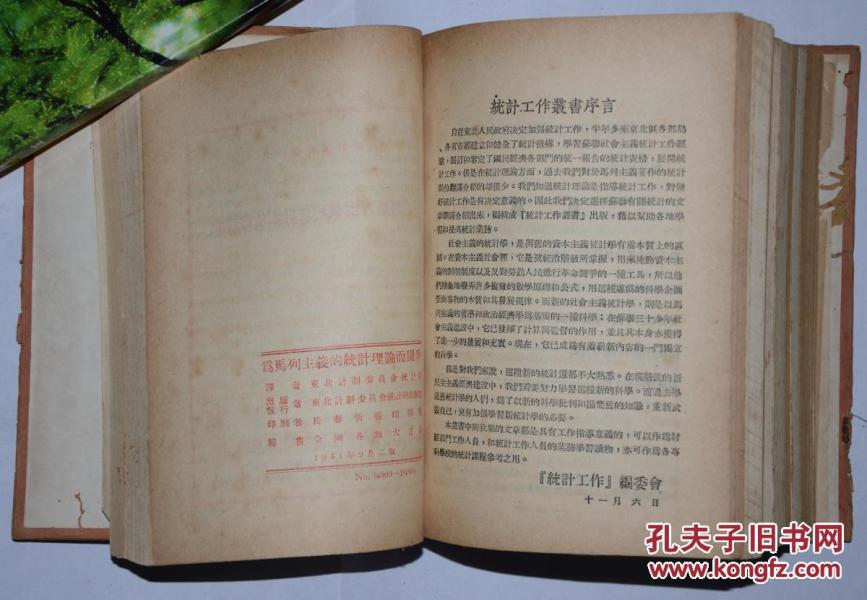 為馬列主義的統計理論而鬪爭
譯者 東北計劃委員會統計
出版 者 東北計劃委員會統計
發行
印刷者 長春新
經售 全國各地大書
1951年9月二版
No.
統計工作叢書序言
自從東北人民政府決定加强統計工作,半年多來東北區各部局
、各省市都建立和健全了統計機構,學習蘇聯社會主義統計工作經
驗,製訂和審定了國民經濟各部門的統一報告的統計表格,展開統
計工作。但是在統計理論方面,過去我們對於馬列主義著作的統計
部份翻譯介紹的却很少。我們知道統計理論是指導統計工作,對做
好統計工作是有決定意義的。因此我們決定選擇蘇聯有關統計的文
章翻譯介紹出來,編輯成『統計工作叢書』出版,藉以幫助各地學
習和提高統計業務。
社會主義的統計學,是與舊的資本主義統計學有着本質上的區
別。在資本主義社會裡,它是被統治階級所掌握,用來掩飾資本主
義的剝削制度以及反對勞動人民進行革命鬪爭的一種工具,所以他
們抽象地發弄許多複雜的數學原理和公式,用這種虛僞的科學企圖
歪曲事物的本質和其發展規律。而新的社會主義統計學,則是以馬
列主義的哲學和政治經濟學為基礎的一種科學;在蘇聯三十多年社
會主義建設中,它已發揮了計算與監督的作用,並且其本身亦獲得
了進一步的發展和充實。現在,它已成為有着嶄新內容的一門獨立
的科學。
但是對我們來說,這種新的統計還都不大熟悉。在現階段的新
民主主義經濟建設中,我們需要努力學習這種新的科學。而過去學
過舊統計學的人們,為了以新的科學批判和揚棄舊的知識,重新武
裝自己,更有加强學習新統計學的必要。
本叢書中所收集的文章都是具有工作指導意義的,可以作為財
經部門工作人員,和統計工作人員的業務學習讀物,亦可作為各專
科學校的統計課程參考之用。
『統計工作』編委會
十一月六日
孔夫子旧书网
www.kongfz.com